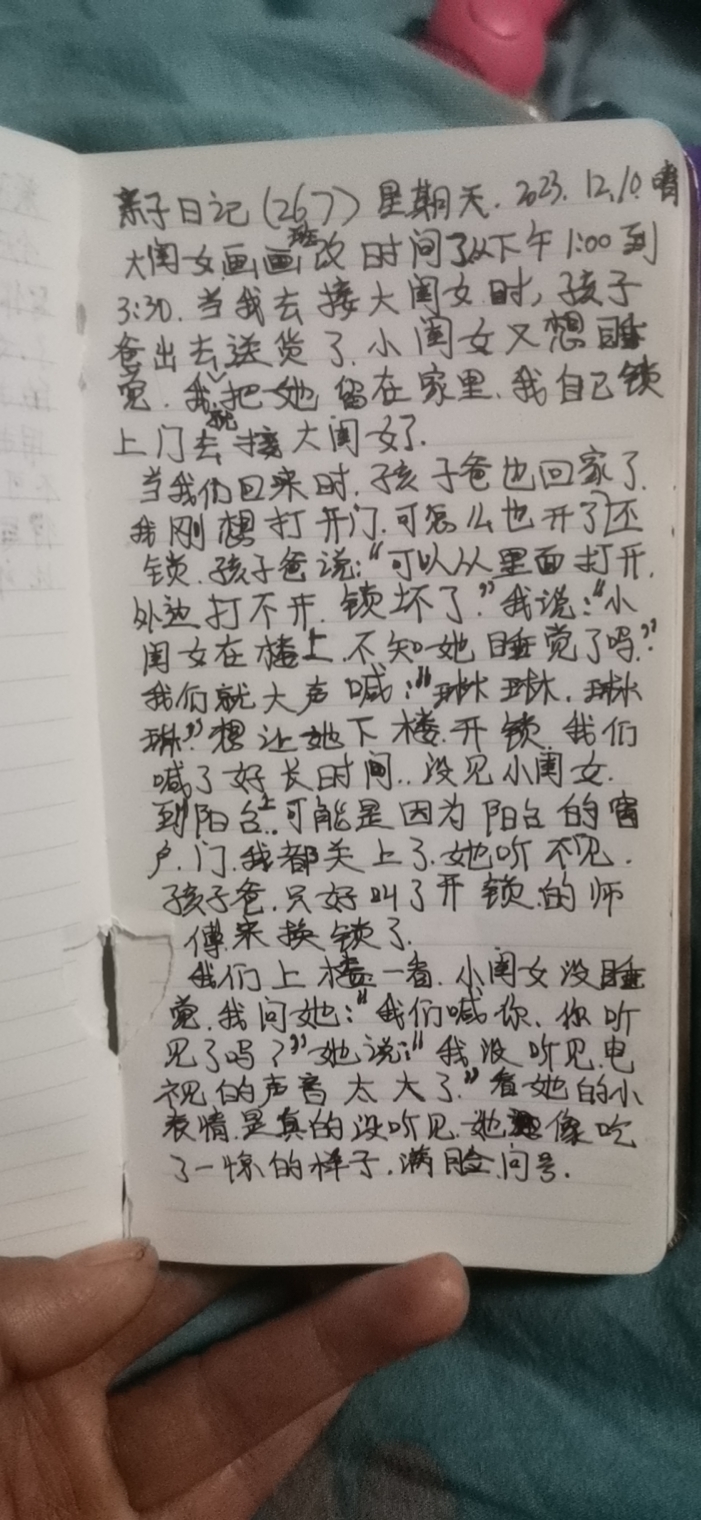 亲子日记(267) 星期天. 2023. 12.10. 晴
大闺女画画班改时间了从下午1:00到
3:30. 当我去接大闺女时, 孩子
爸出去送货了. 小闺女又想睡
觉. 我就把她留在家里. 我自己锁
上门去接大闺女了.
当我们回来时. 孩子爸也回家了.
我刚想打开门. 可怎么也开了不
锁. 孩子爸说:“可以从里面打开.
外边打不开. 锁坏了.”我说:“小
闺女在楼上. 不知她睡觉了吗?”
我们就大声喊:“琳琳. 琳
琳.”想让她下楼. 开锁. 我们
喊了好长时间.. 没见小闺女.
到阳台上.. 可能是因为阳台的窗
户. 门. 我都关上了. 她听不见.
孩子爸. 只好叫了开锁的师
傅来换锁了.
我们上楼一看. 小闺女没睡
觉. 我问她:“我们喊你、你听
见了吗?”她说:“我没听见. 电
视的声音太大了.”看她的小
表情. 是真的没听见. 她像吃
了一惊的样子. 满脸问号.